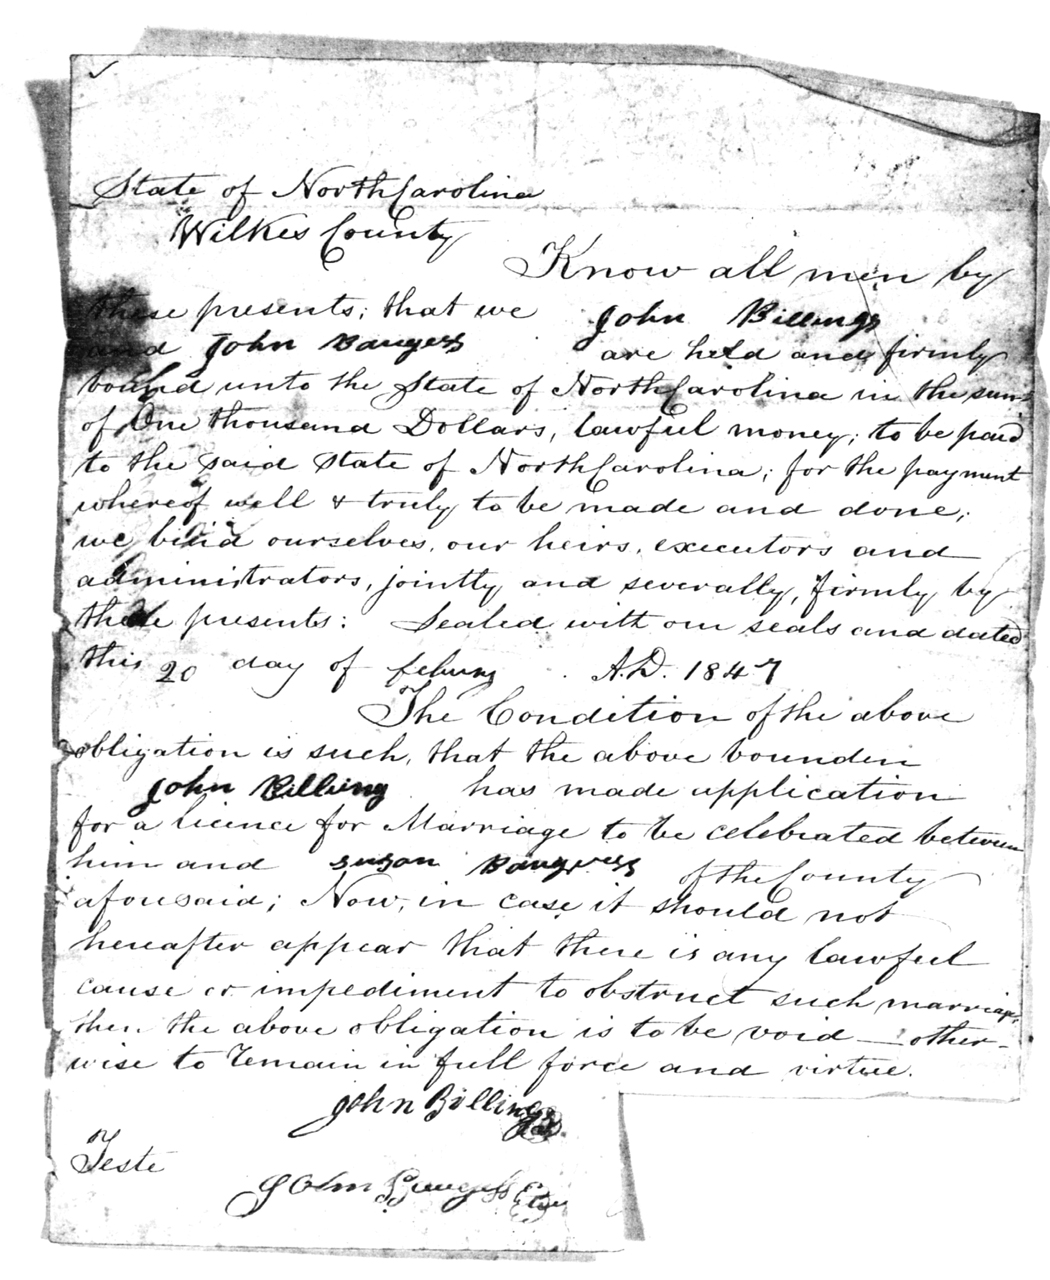 State of North Carolina
Wilkes County
Know all men by
these presents; that we John Billings
and John Baugess are held and firmly
bound unto the State of North Carolina in the sum
of One thousand Dollars, lawful money; to be paid
to the said State of North Carolina; for the payment
whereof well & truly to be made and done;
we bind ourselves, our heirs, executors and
administrators, jointly and severally, firmly by
these presents: Sealed with our seals and dated
this 20 day of A.D. 1847
The Condition of the above
obligation is such, that the above bounden
John Billing has made application
for a licence for Marriage to be celebrated between
him and susan Baugess of the County
aforesaid; Now, in case it should not
hereafter appear that there is any lawful
cause or impediment to obstruct such marriage
then the above obligation is to be void — other-
wise to remain in full force and virtue.
John Billings
Teste
John